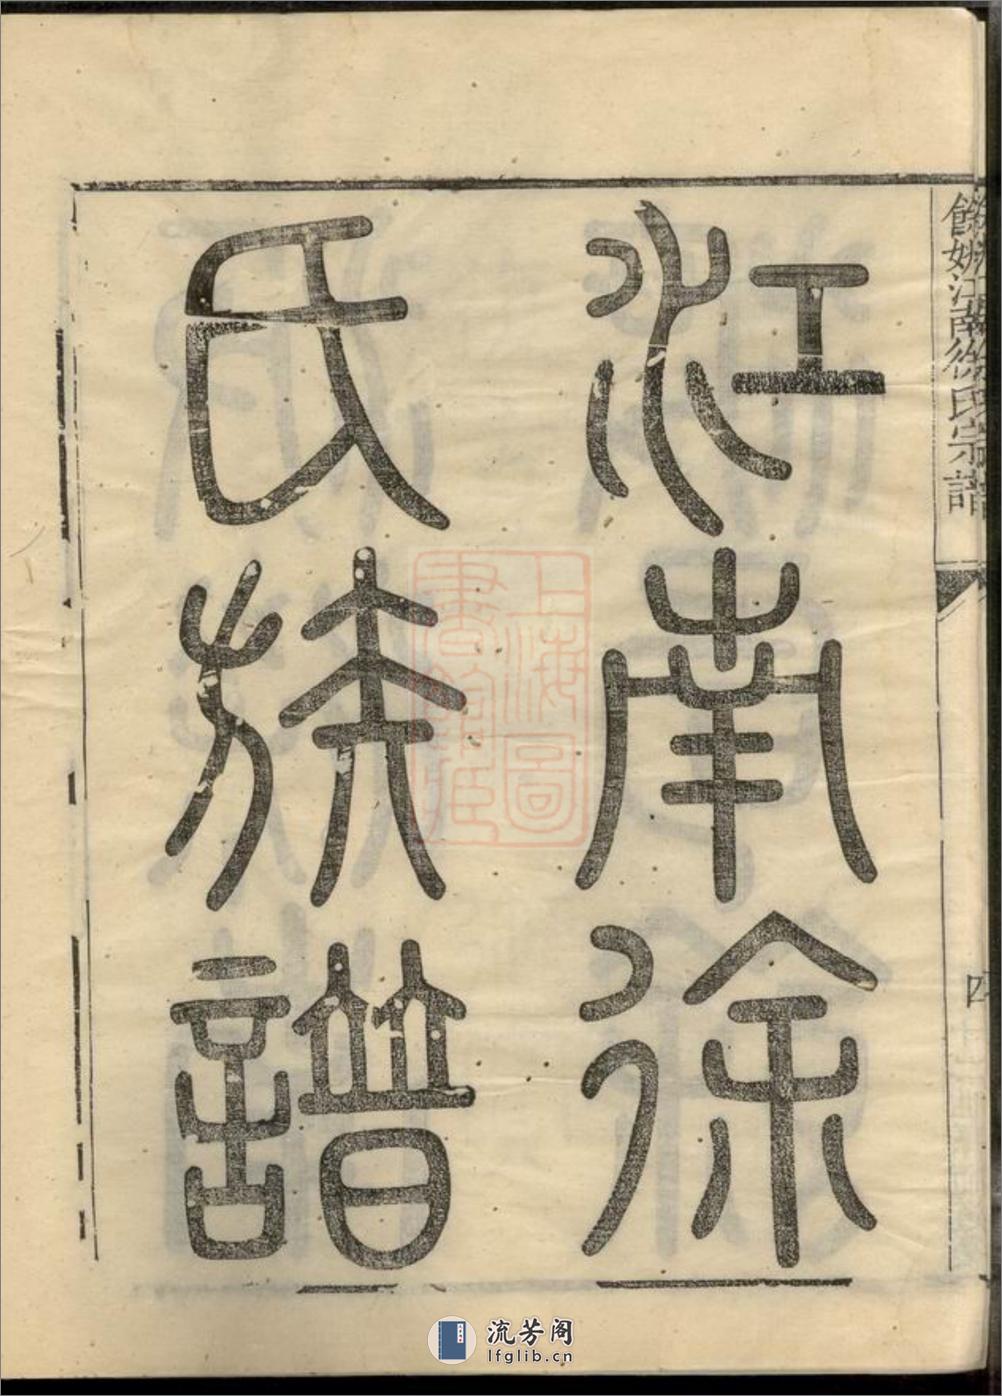 餘姚江南徐氏宗譜
四
江南徐
氏族譜
上海圖
書館臧
流芳阁
lfglib.cn